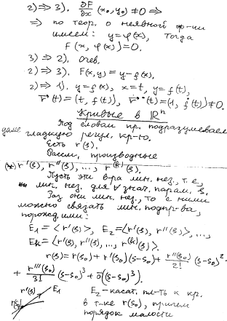 2) ⇒ 3). ∂F/∂x (x₀, y₀) ≠ 0 ⇒
⇒ по теор. о неявной ф-ии
имеем: y = φ(x), Тогда
F(x, φ(x)) = 0.
3) ⇒ 2), очев.
2) ⇒ 3). F(x,y) = y - f(x)
3) ⇒ 1). y = f(x), x = t, y = f(t),
r(t) = (t, f(t)), = (1, f(t)) ≠ 0.
Кривые в ℝⁿ
Под словом кр. подразумеваем
далее гладкую регул. кр-ю.
Есть r(s).
производные
(*) r'(s), r''(s), ..., r⁽ᵏ⁾(s).
Пусть эти в-ра лин. нез., т.е.
лин. нез. для ∀ знач. парам. s,
Раз они лин. нез., то с ними
можно связать лин. подпр-ва,
порожд ими:
E₁ = <r'(s)>, E₂ = <r'(s), r''(s)>, ...,
Eₖ = <r'(s), r''(s), ..., r⁽ᵏ⁾(s)>.
r(s) = r(s₀) + r'(s₀)(s-s₀) + r''(s₀)/2! (s-s₀)² +
+ r'''(s₀)/3! (s-s₀)³ + ō((s-s₀)³).
E₁ E₂ - касат. пл-ть к кр.
r(s₀) в т-ке r(s₀), причем
порядок малости